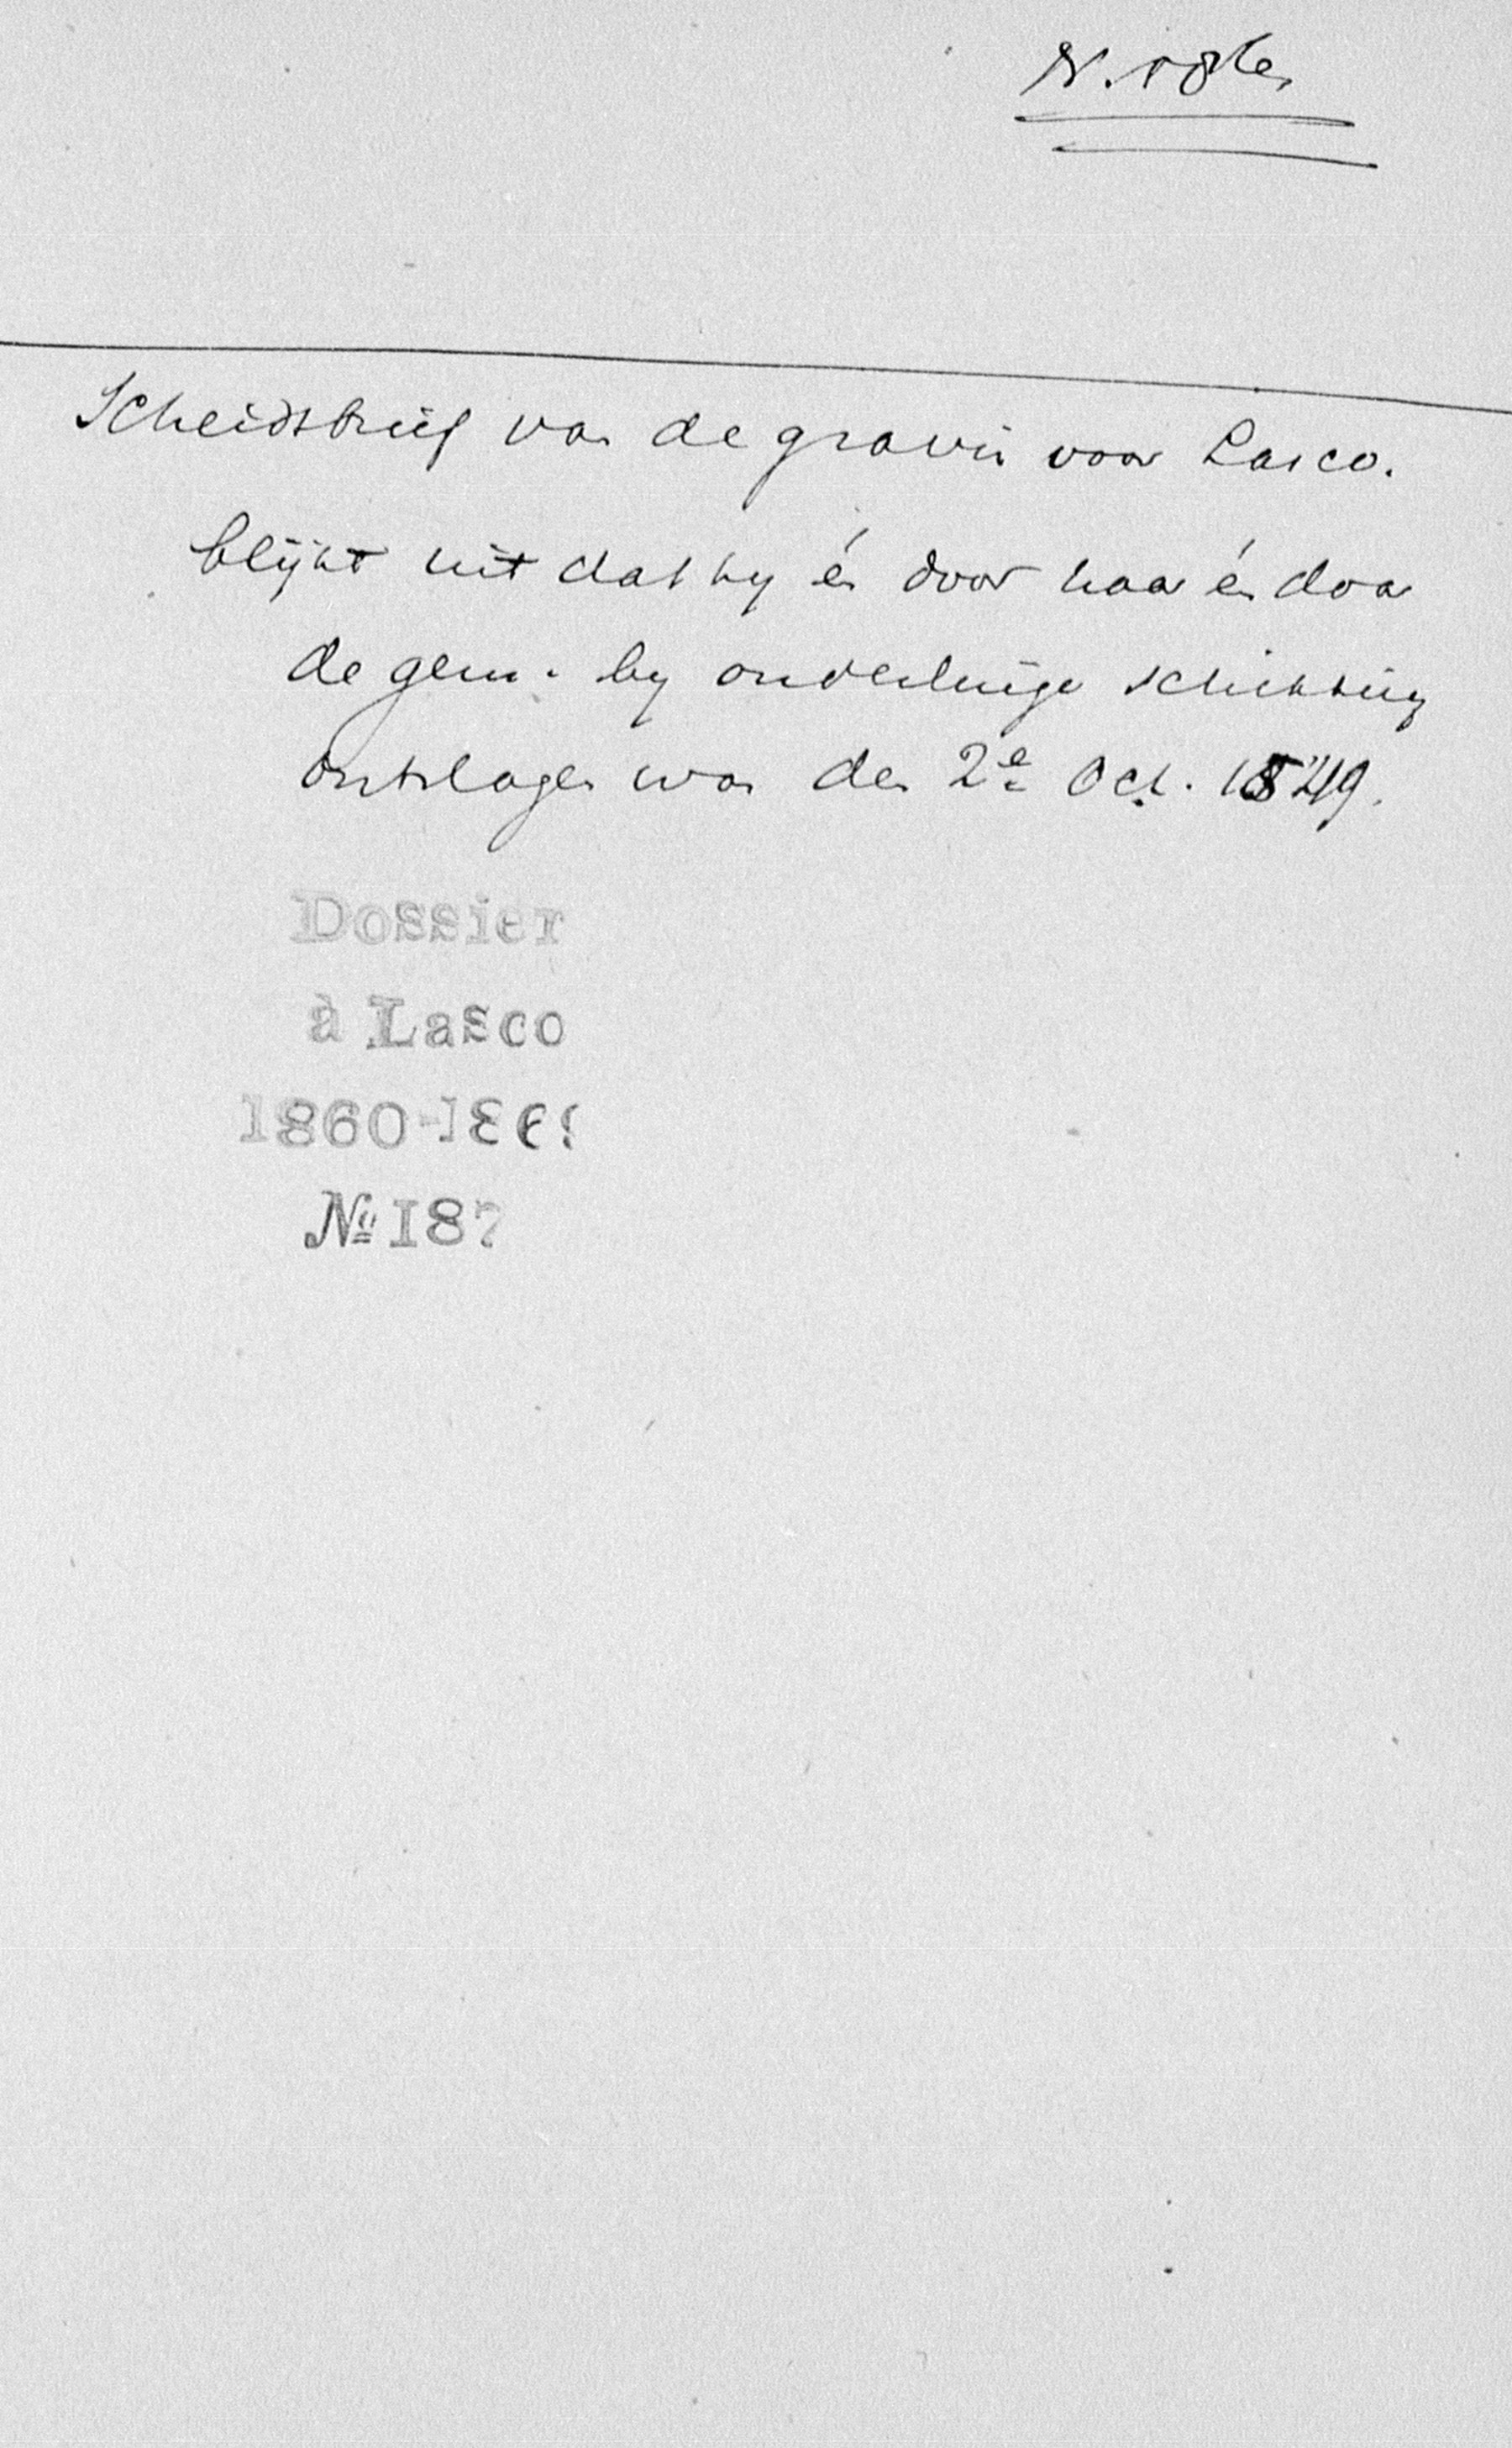 Scheidsbrief van de gravin voor Lasco.
blijkt uit dat hy én door haar én door
de gem. by onderlinge schikking
ontslagen was den 2e Oct. 1549.
Dossier
à Lasco
1860-1861
№ 187